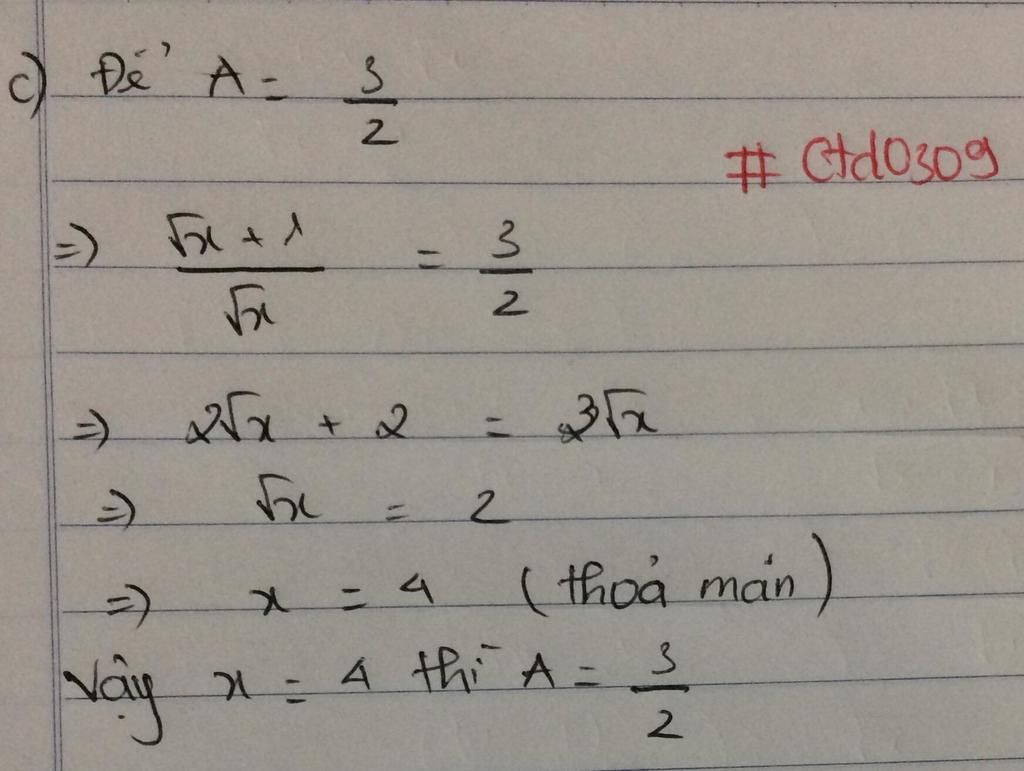 c) Để A = 3/2
# Ctd0309
=> (√x + 1)/√x = 3/2
=> 2√x + 2 = 3√x
=> √x = 2
=> x = 4 (thoả mãn)
Vậy x = 4 thì A = 3/2